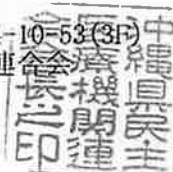 -10-53(3F)
連合会
沖縄県民主
医療機関連
合会会長之印